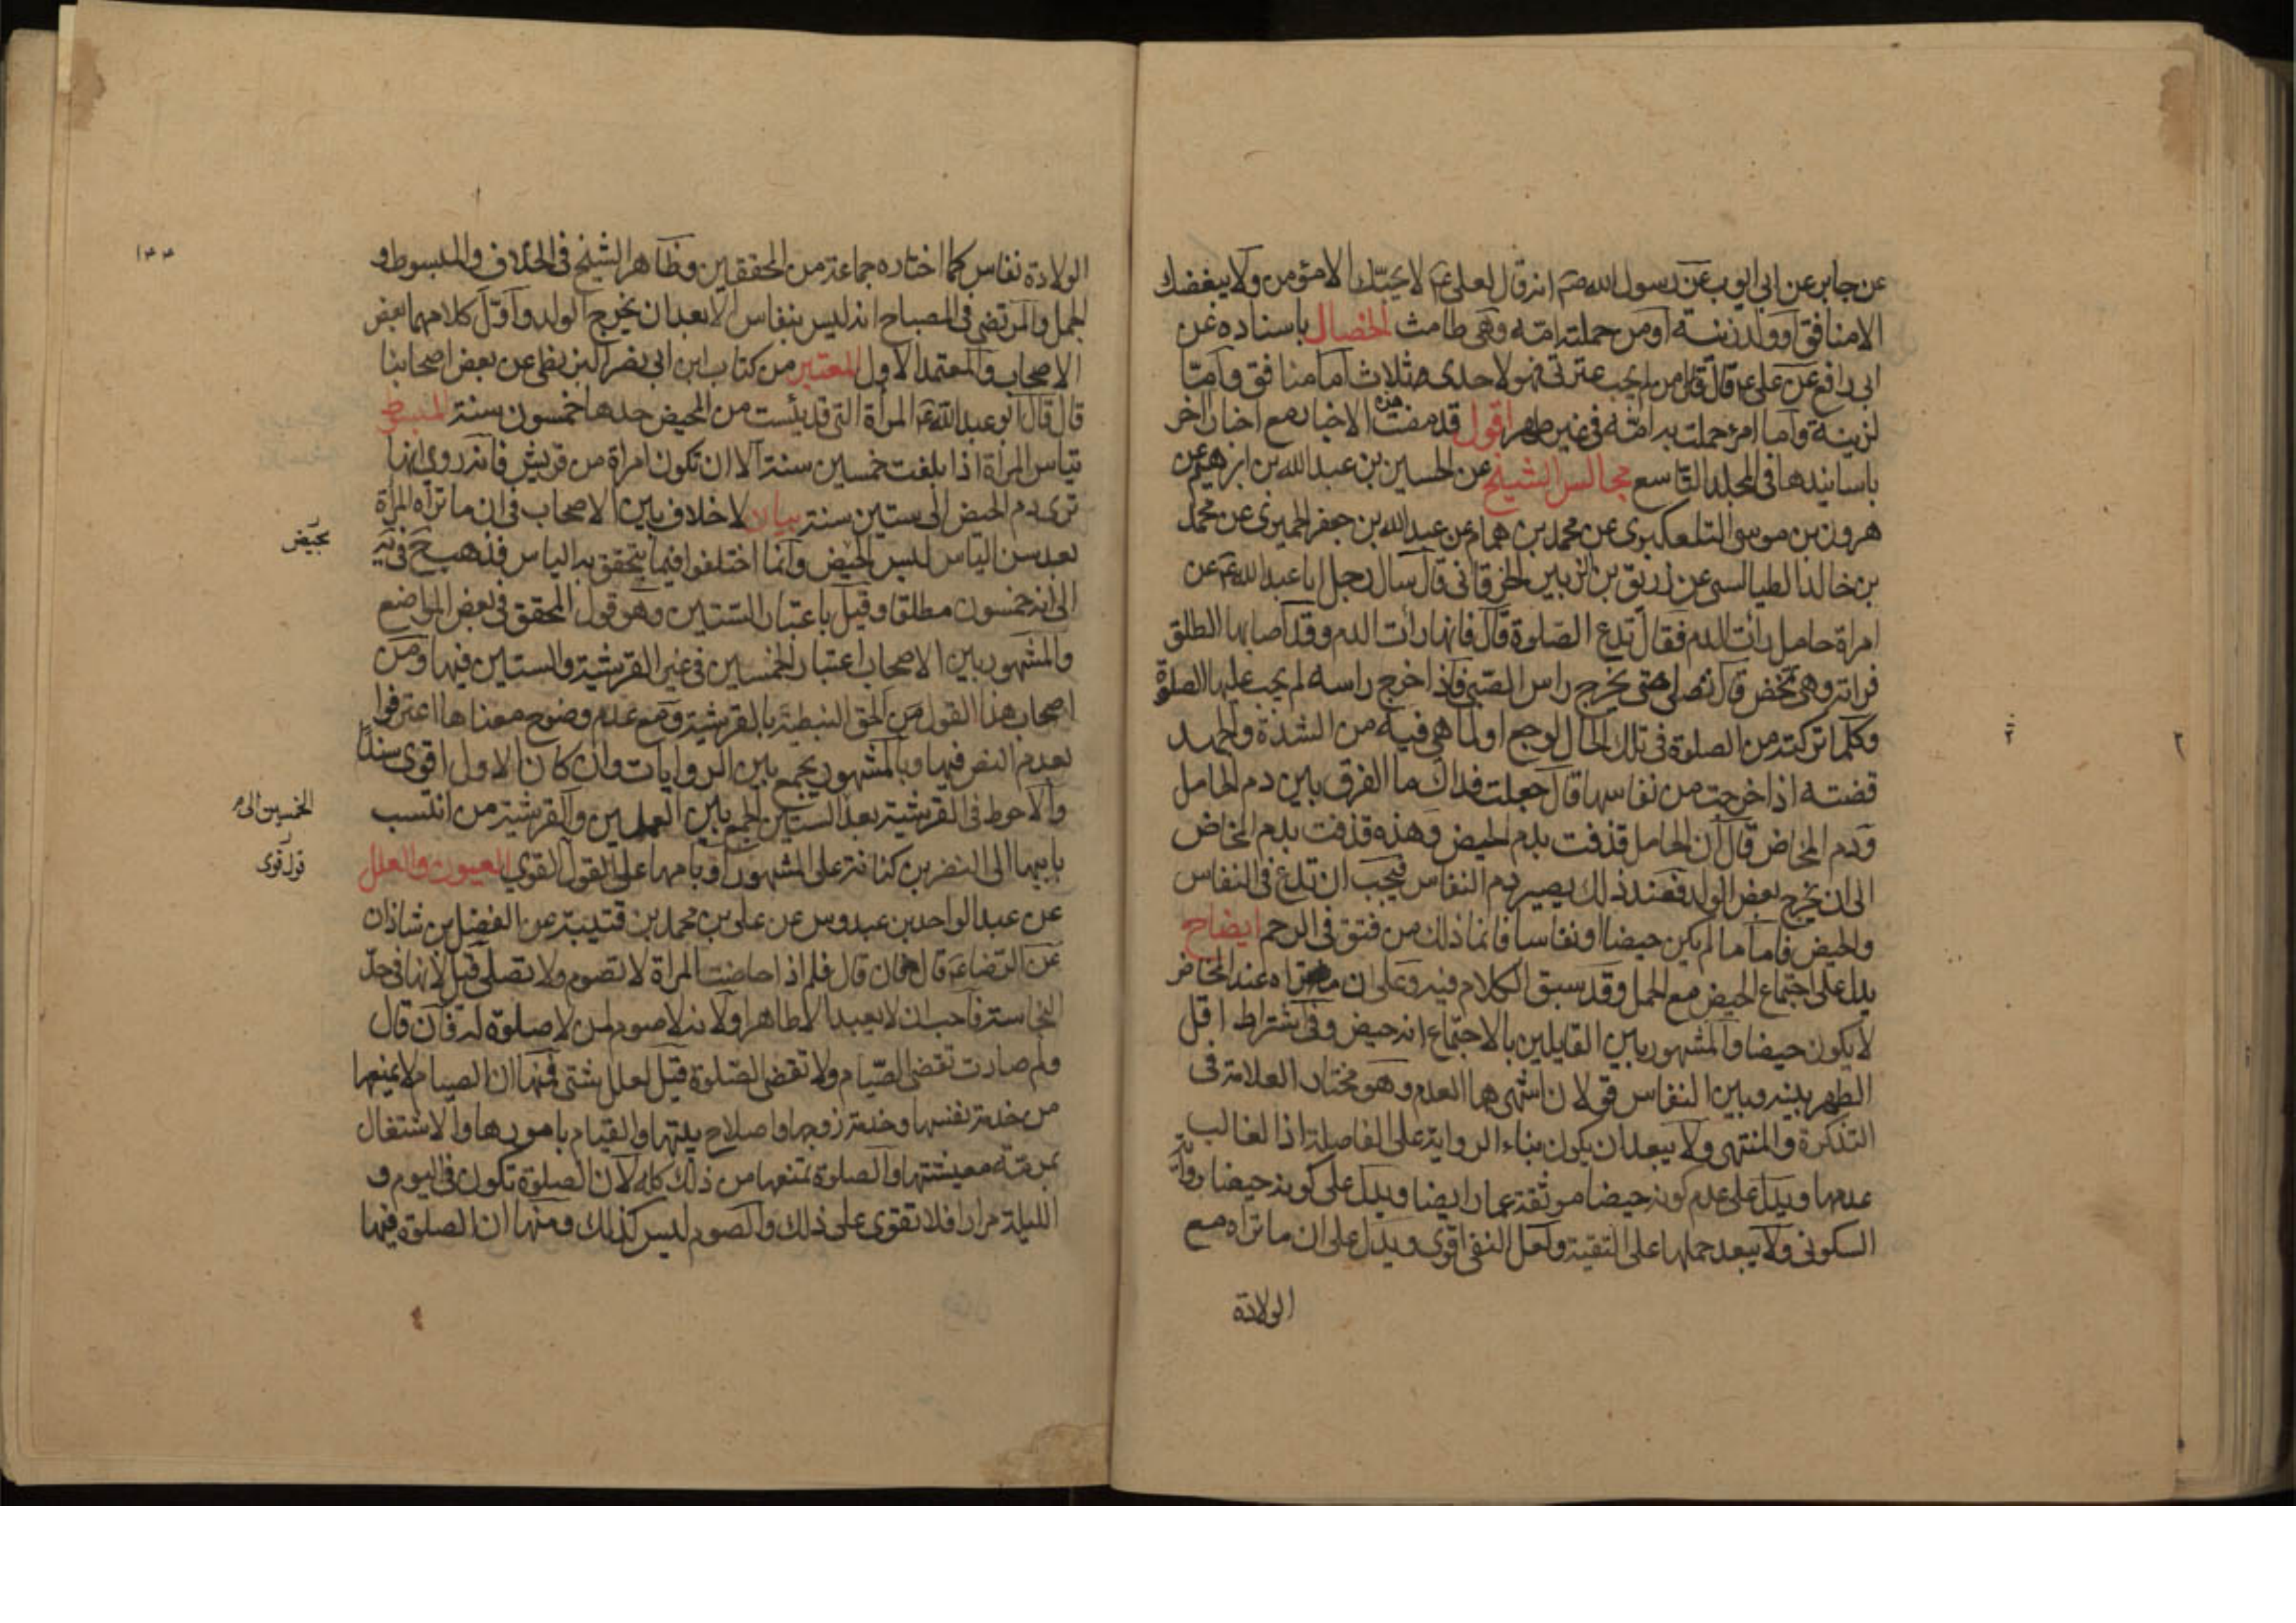 عن جابر عن ابى ايوب عن رسول الله صم انه قال لعلى عم لا يحبك الا مؤمن ولا يبغضك
الا منافق او ولد زنية او من حملته امه وهى طامث الخصال باسناده عن
ابى رافع عن على عم قال قال من لم يحب عترتى فهو لاحدى ثلاث اما منافق واما
لزنية واما امرؤ حملت به امه فى غير طهر اقول قد مضت هذه الاخبار مع اخبار اخر
باسانيدها فى المجلد التاسع مجالس الشيخ عن الحسين بن عبد الله بن ابرهيم عن
هرون بن موسى التلعكبرى عن محمد بن همام عن عبد الله بن جعفر الحميرى عن محمد
بن خالد الطيالسى عن زريق بن الزبير الخرقانى قال سال رجل ابا عبد الله عم عن
امراة حامل رات الدم فقال تدع الصلوة قال فانها رات الدم وقد اصابها الطلق
فراته وهى تمخض قال تصلى حتى يخرج راس الصبى فاذا خرج راسه لم يجب عليها الصلوة
وكلما تركته من الصلوة فى تلك الحال لوجع او لما هى فيه من الشدة والجهد
قضته اذا خرجت من نفاسها قال جعلت فداك ما الفرق بين دم الحامل
ودم المخاض قال ان الحامل قذفت بدم الحيض وهذه قذفت بدم المخاض
الى ان يخرج بعض الولد فعند ذلك يصير دم النفاس فيجب ان تدع فى النفاس
والحيض فاما ما لم يكن حيضا او نفاسا فانما ذلك من فتق فى الرحم ايضاح
يدل على اجتماع الحيض مع الحمل وقد سبق الكلام فيه وعلى ان ما تراه عند المخاض
لا يكون حيضا والمشهور بين القايلين بالاجتماع انه حيض وفى اشتراط اقل
الطهر بينه وبين النفاس قولان اشهرهما العدم وهو مختار العلامة فى
التذكرة والمنتهى ولا يبعد ان يكون بناء الرواية على الفاصلة اذ الغالب
عدمها ويدل على عدم كونه حيضا موثقة عمار ايضا ويدل على كونه حيضا رواية
السكونى ولا يبعد حملها على التقية ولعل النفى اقوى ويدل على ان ما تراه مع
الولادة
الولادة نفاس كما اختاره جماعة من المحققين وظاهر الشيخ فى الخلاف والمبسوط و
الجمل والمرتضى فى المصباح انه ليس بنفاس الا بعد ان يخرج الولد واول كلامهما بعض
الاصحاب والمعتمد الاول المعتبر من كتاب ابن ابى نصر البزنطى عن بعض اصحابنا
قال قال ابو عبد الله عم المراة التى قد يئست من المحيض حدها خمسون سنة المبسوط
تياس المراة اذا بلغت خمسين سنة الا ان تكون امراة من قريش فانه روى انها
ترى دم الحيض الى ستين سنة بيان لا خلاف بين الاصحاب فى ان ما تراه المراة
بعد سن الياس ليس بحيض وانما اختلفوا فيما يتحقق به الياس فذهب خ فى يه
بحيض
الى انه خمسون مطلقا وقيل باعتبار الستين وهو قول المحقق فى بعض المواضع
والمشهور بين الاصحاب اعتبار الخمسين فى غير القرشية والستين فيها ومن
اصحاب هذا القول من الحق النبطية بالقرشية ومع عدم وضوح معناها اعترفوا
بعدم النص فيها وبالمشهور يجمع بين الروايات وان كان الاول اقوى سندا
والاحوط فى القرشية بعد الستين الجمع بين العملين والقرشية من انتسب
الخمسين الى
بابيها الى النضر بن كنانة على المشهور او بامها على القول القوى العيون والعلل
قول قوى
عن عبد الواحد بن عبدوس عن على بن محمد بن قتيبة عن الفضل بن شاذان
عن الرضا عم قال فان قال فلم اذا حاضت المراة لا تصوم ولا تصلى قيل لانها فى حد
النجاسة فاحب ان لا يعبد الا طاهرا ولانه لا صوم لمن لا صلوة له فان قال
ولم صارت تقضى الصيام ولا تقضى الصلوة قيل لعلل شتى فمنها ان الصيام لا يمنعها
من خدمة نفسها وخدمة زوجها واصلاح بيتها والقيام بامورها والاشتغال
بمرمة معيشتها والصلوة تمنعها من ذلك كله لان الصلوة تكون فى اليوم و
الليلة مرارا فلا تقوى على ذلك والصوم ليس كذلك ومنها ان الصلوة فيها